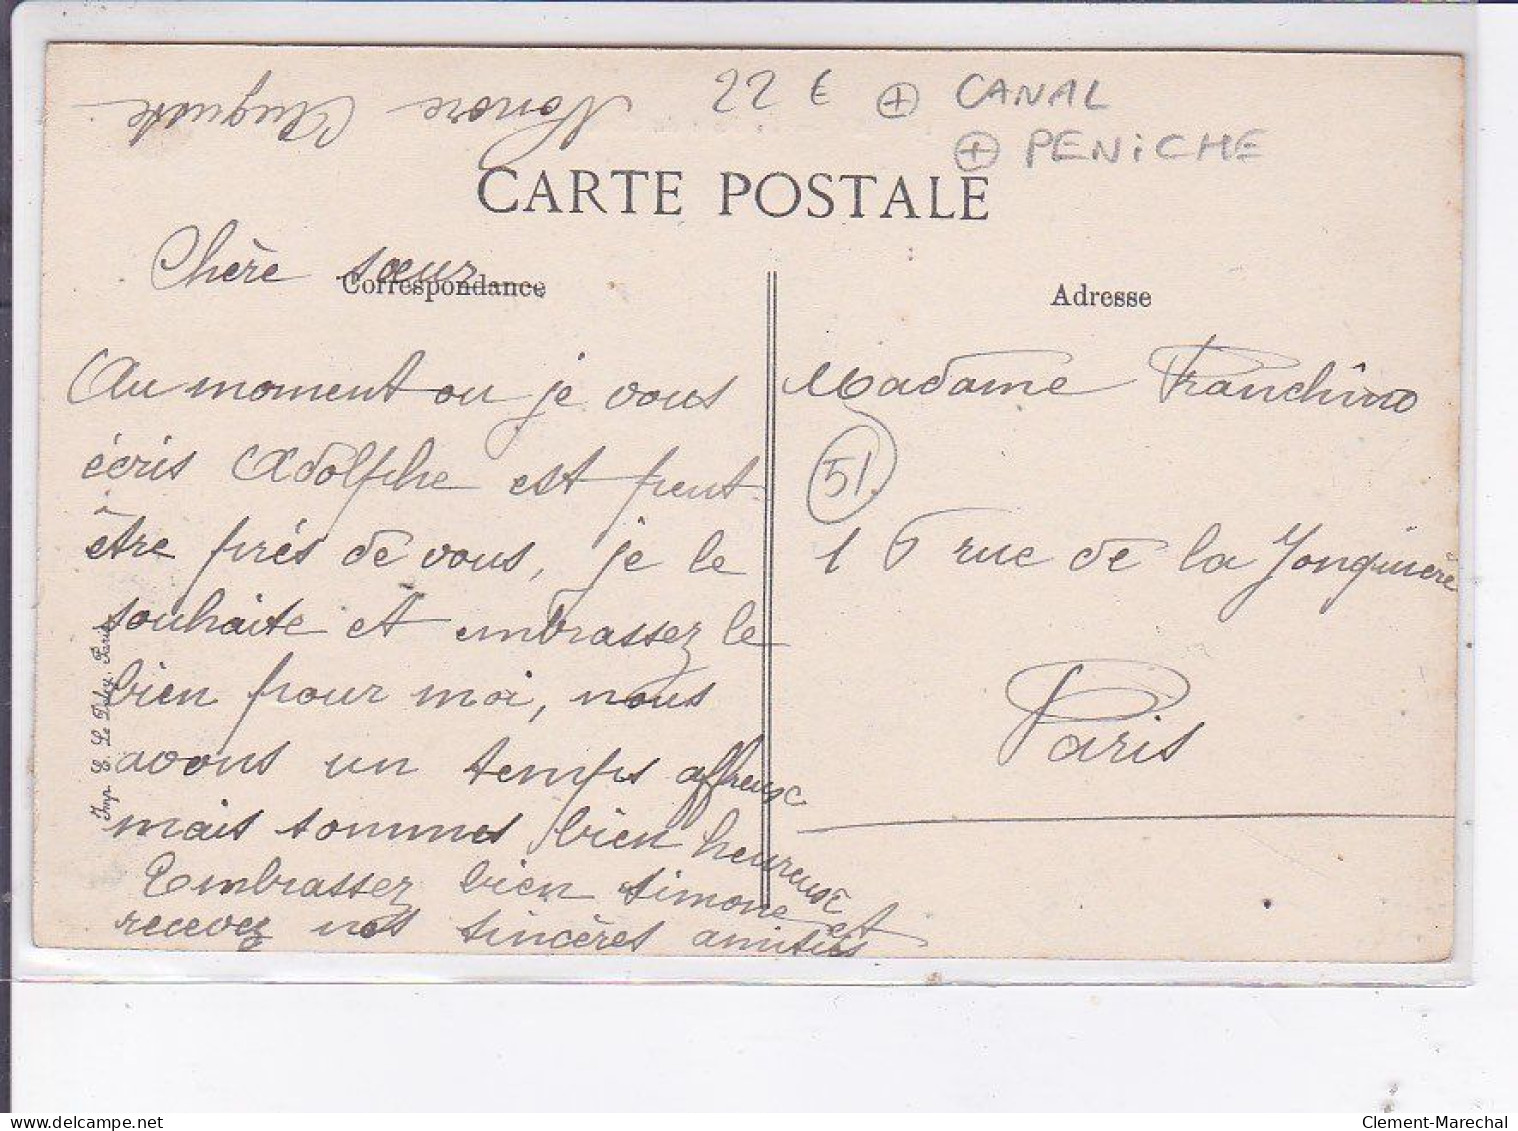 22 € + CANAL
+ PENiCHE
Auguste
CARTE POSTALE
Chère sœur
Correspondance
Au moment ou je vous
écris Adolphe est peut-
être prés de vous, je le
souhaite et embrassez le
bien pour moi, nous
avons un temps affreux
mais sommes bien heureux
Embrassez bien Simone et
recevez nos sincères amitiés
Imp. E. Le Deley, Paris
Adresse
Madame Franchino
51
1 rue de la Jonquière
Paris
Clement-Marechal